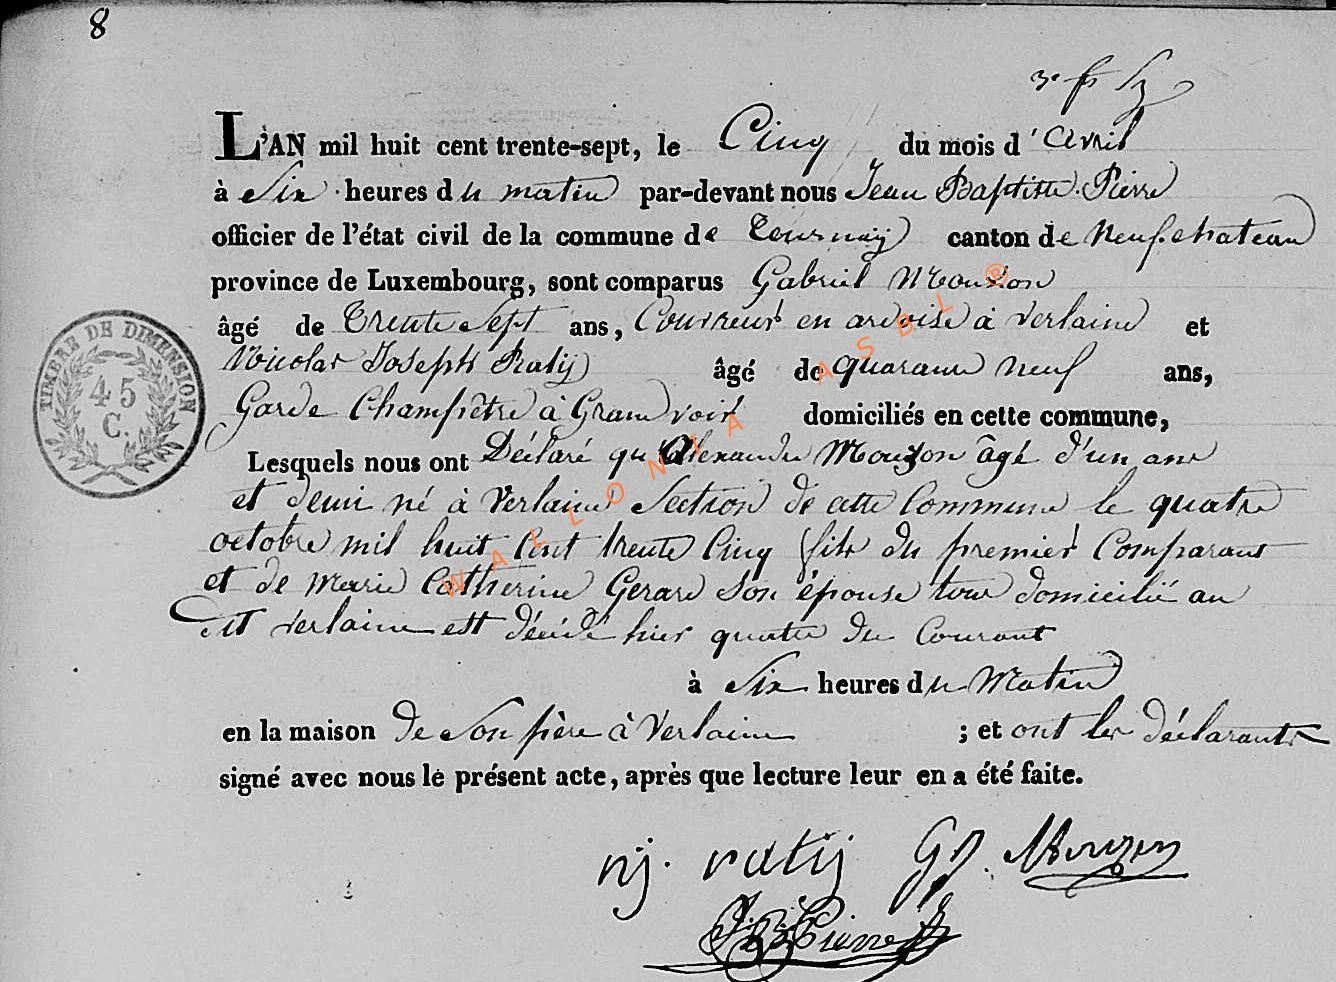 8
L'AN mil huit cent trente-sept, le Cinq du mois d'avril
à Six heures du matin par-devant nous Jean Baptiste Pierre
officier de l'état civil de la commune de Tournaÿ canton de Neufchateau
province de Luxembourg, sont comparus Gabriel Mouzon
âgé de Trente Sept ans, Couvreur en ardoise à Verlaine et
Nicolas Joseph Ratÿ âgé de quarante neuf ans,
Garde Champêtre à Grandvoir domiciliés en cette commune,
Lesquels nous ont Déclaré qu'Alexandre Mouzon âgé d'un ans
et demi né à Verlaine Section de cette Commune le quatre
octobre mil huit Cent trente Cinq fils du premier Comparant
et de Marie Catherine Gerard Son épouse tous domicilié au
dit Verlaine est décédé hier quatre du Courant
à Six heures du Matin
en la maison de Son père à Verlaine ; et ont les déclarants
signé avec nous le présent acte, après que lecture leur en a été faite.
nj. ratij Gl. Mouzon
J.B. Pierre
TIMBRE DE DIMENSION
45
C.
WALLONIA ASBL ®